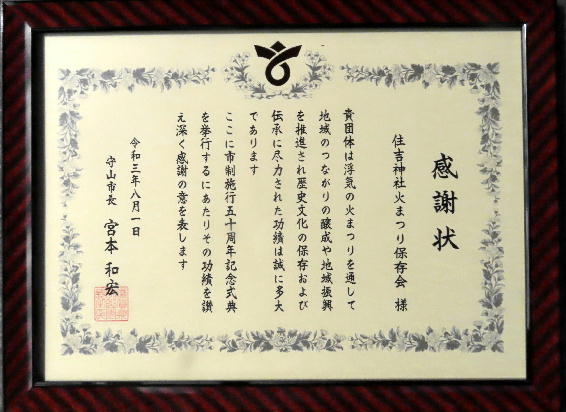 感謝状
住吉神社火まつり保存会 様
貴団体は浮気の火まつりを通して
地域のつながりの醸成や地域振興
を推進され歴史文化の保存および
伝承に尽力された功績は誠に多大
であります
ここに市制施行五十周年記念式典
を挙行するにあたりその功績を讃
え深く感謝の意を表します
令和三年八月一日
守山市長 宮本 和宏